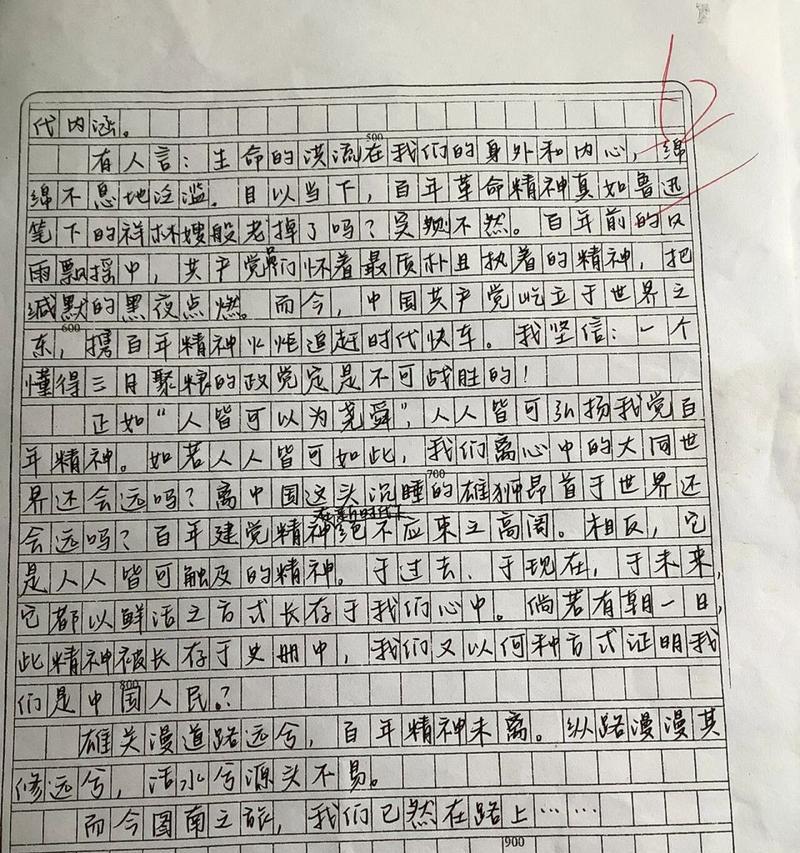 代内涵。
500
有人言：生命的洪流在我们的身外和内心，绵
绵不息地泛滥。目以当下，百年革命精神真如鲁迅
笔下的祥林嫂般老掉了吗？实则不然。百年前的风
雨飘摇中，共产党员们怀着最质朴且执着的精神，把
缄默的黑夜点燃。而今，中国共产党屹立于世界之
600
东，携百年精神火炬追赶时代快车。我坚信：一个
懂得三月聚粮的政党定是不可战胜的！
正如“人皆可以为尧舜”，人人皆可弘扬我党百
年精神。如若人人皆可如此，我们离心中的大同世
700
界还会远吗？离中国这头沉睡的雄狮昂首于世界还
在新时代
会远吗？百年建党精神绝不应束之高阁。相反，它
是人人皆可触及的精神。于过去、于现在，于未来，
它都以鲜活之方式长存于我们心中。倘若有朝一日，
此精神被长存于史册中，我们又以何种方式证明我
800
们是中国人民。？
雄关漫道路远兮，百年精神未离。纵路漫漫其
修远兮，活水兮源头不易。
而今图南之旅，我们已然在路上……
900